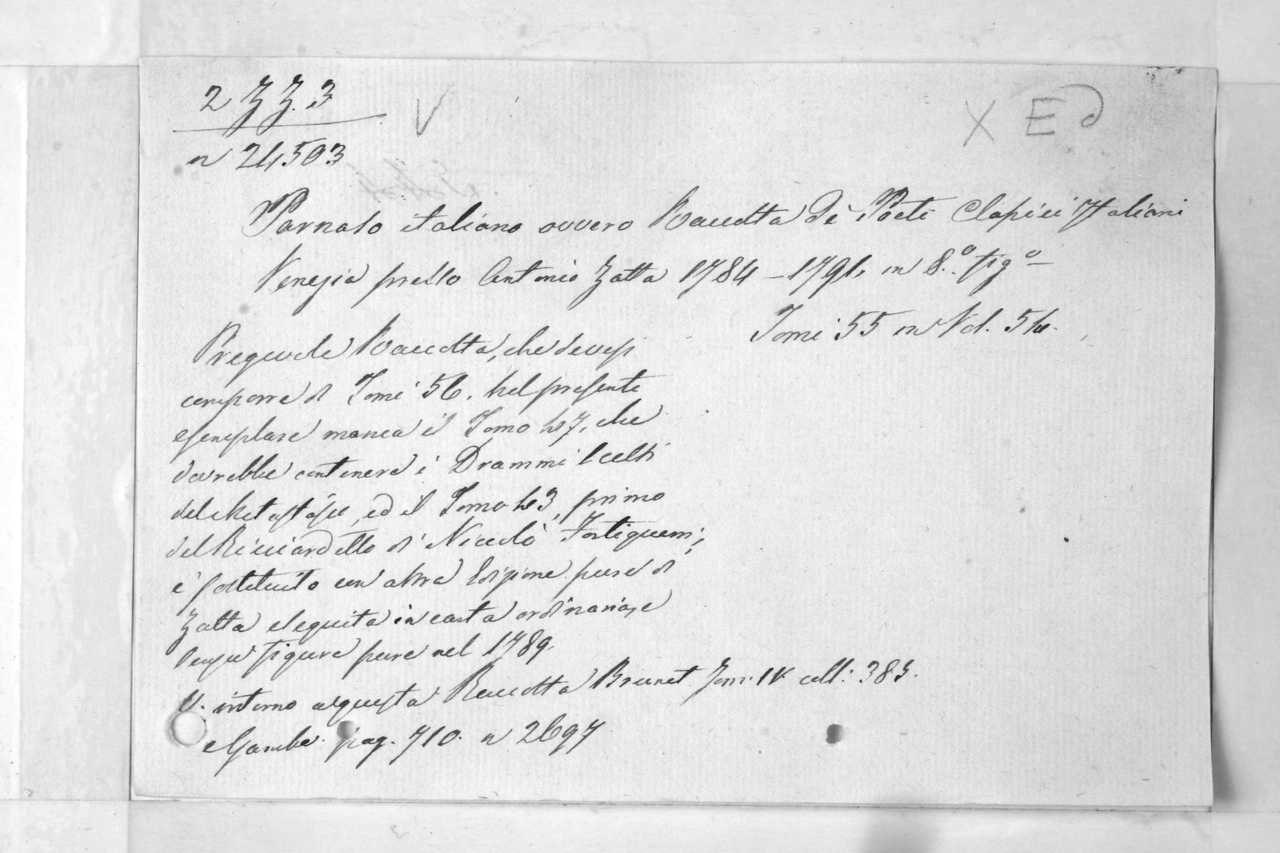 2 ZZ. 3
V
X E
n 24503
Parnaso italiano ovvero Raccolta de' Poeti Classici Italiani
Venezia presso Antonio Zatta 1784 – 1791. in 8.º figº
Tomi 55 in Vol. 54.
Pregevole Raccolta, che devesi
comporre di Tomi 56. nel presente
esemplare manca il Tomo 47, che
dovrebbe contenere i Drammi scelti
del Metastasio, ed il Tomo 43, primo
del Ricciardetto di Niccolò Fortiguerri,
è sostituito con altra Edizione pure di
Zatta eseguita in carta ordinaria, e
senza figure pure nel 1789.
V. intorno a questa Raccolta Brunet Tom. IV coll: 383.
e Gamba. pag. 710. n 2697